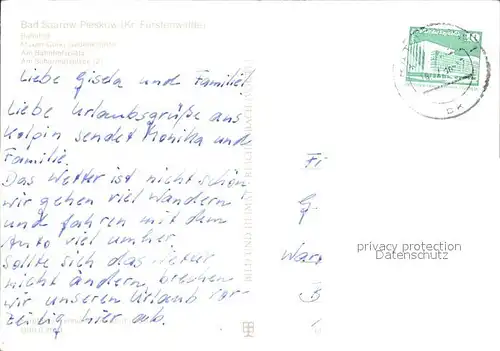 Bad Saarow-Pieskow (Kr. Fürstenwalde)
Bahnhof
Am Bahnhofsplatz
Liebe Gisela und Familie!
Liebe Urlaubsgrüße aus
Kolpin sendet Monika und
Familie.
Das Wetter ist nicht schön
wir gehen viel wandern
und fahren mit dem
Auto viel umher.
Sollte sich das Wetter
nicht ändern, brechen
wir unseren Urlaub vor-
zeitig hier ab.
BILD UND HEIMAT
10
Fr
G
War
privacy protection
Datenschutz